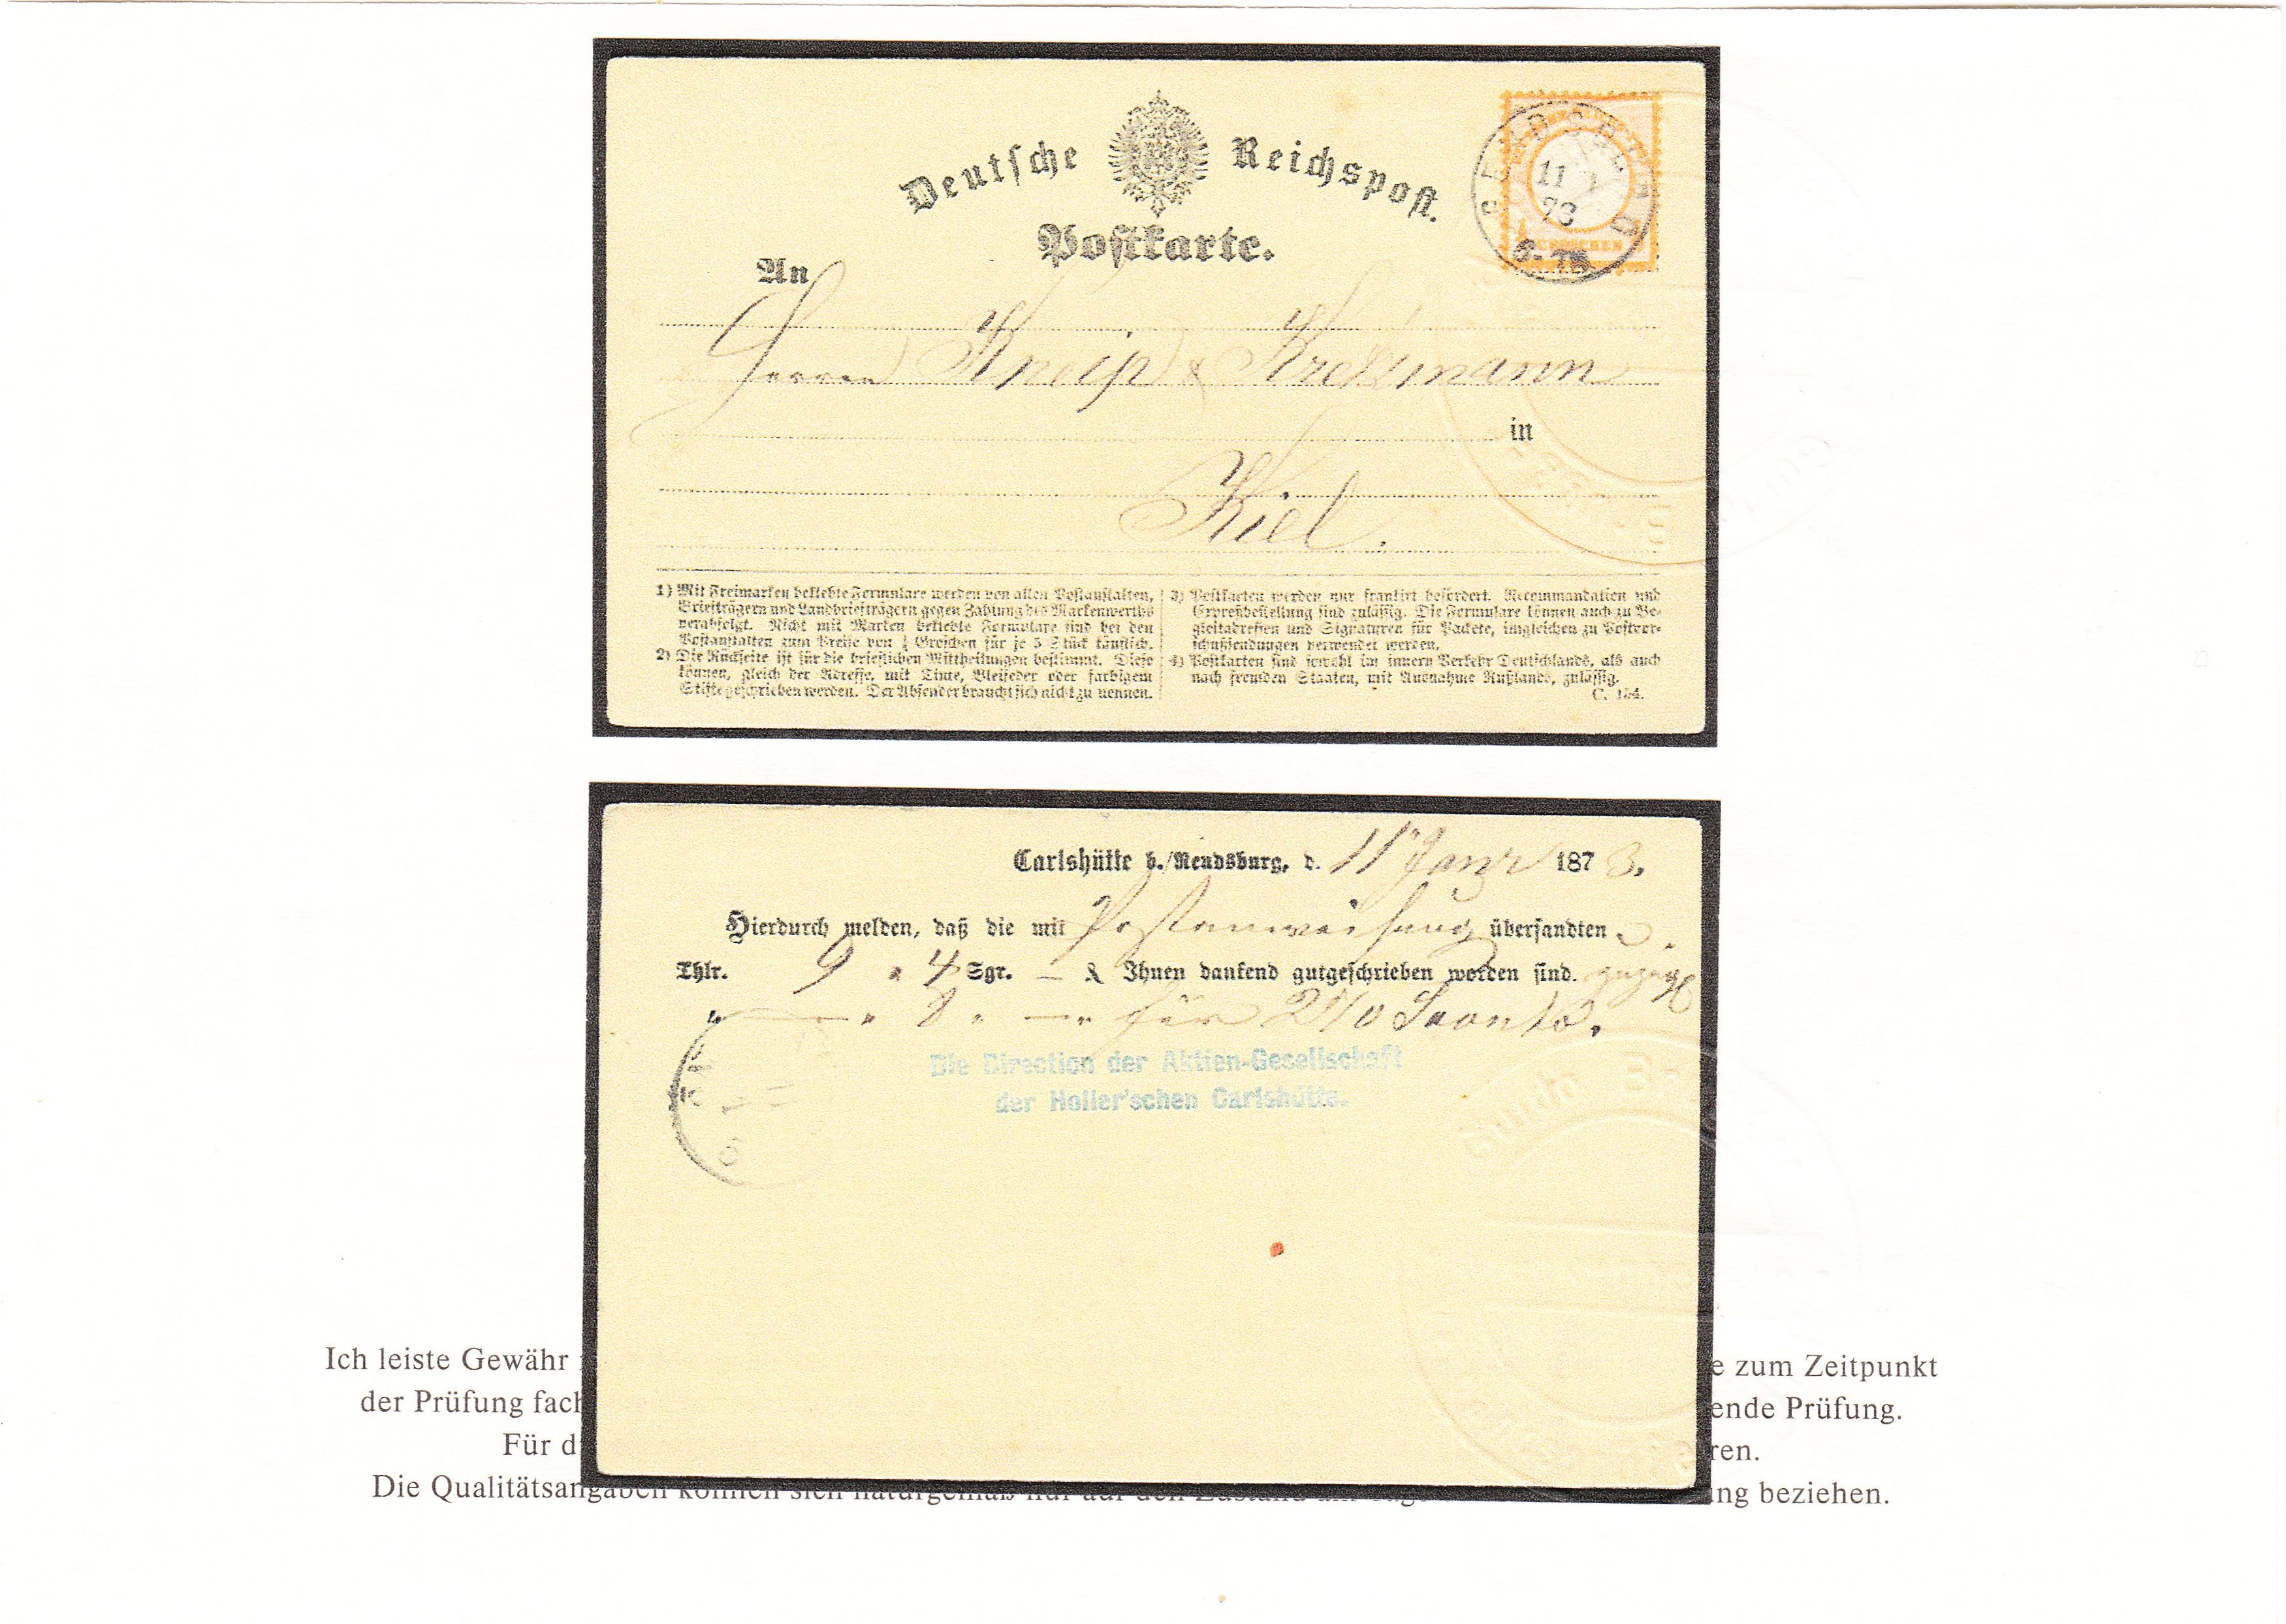 Deutsche Reichspost.
Postkarte.
11 1
73
6-7N.
GROSCHEN
An
Herren Kneip & Kretzmann
in
Kiel.
1) Mit Freimarken beklebte Formulare werden von allen Postanstalten,
Briefträgern und Landbriefträgern gegen Zahlung des Markenwerths
verabfolgt. Nicht mit Marken beklebte Formulare sind bei den
Postanstalten zum Preise von ¼ Groschen für je 5 Stück käuflich.
2) Die Rückseite ist für die brieflichen Mittheilungen bestimmt. Diese
können, gleich der Adresse, mit Tinte, Bleifeder oder farbigem
Stifte geschrieben werden. Der Absender braucht sich nicht zu nennen.
3) Postkarten werden nur frankirt befördert. Recommandation und
Expreßbestellung sind zulässig. Die Formulare können auch zu Be-
gleitadressen und Signaturen für Packete, imgleichen zu Postvor-
schußsendungen verwendet werden.
4) Postkarten sind sowohl im innern Verkehr Deutschlands, als auch
nach fremden Staaten, mit Ausnahme Rußlands, zulässig.
C. 154.
Carlshütte b./Rendsburg, d. 11 Janr 1873.
Hierdurch melden, daß die mit Postanweisung übersandten
Thlr. 9 " 4 Sgr. — & Ihnen dankend gutgeschrieben worden sind. zuzügl
" — " 8 " — " für 2% Sconto.
Die Direction der Aktien-Gesellschaft
der Holler'schen Carlshütte.
Ich leiste Gewähr
e zum Zeitpunkt
der Prüfung fach
ende Prüfung.
Für d
ren.
Die Qualitätsangaben können sich naturgemäß nur auf den Zustand am Tage
ung beziehen.